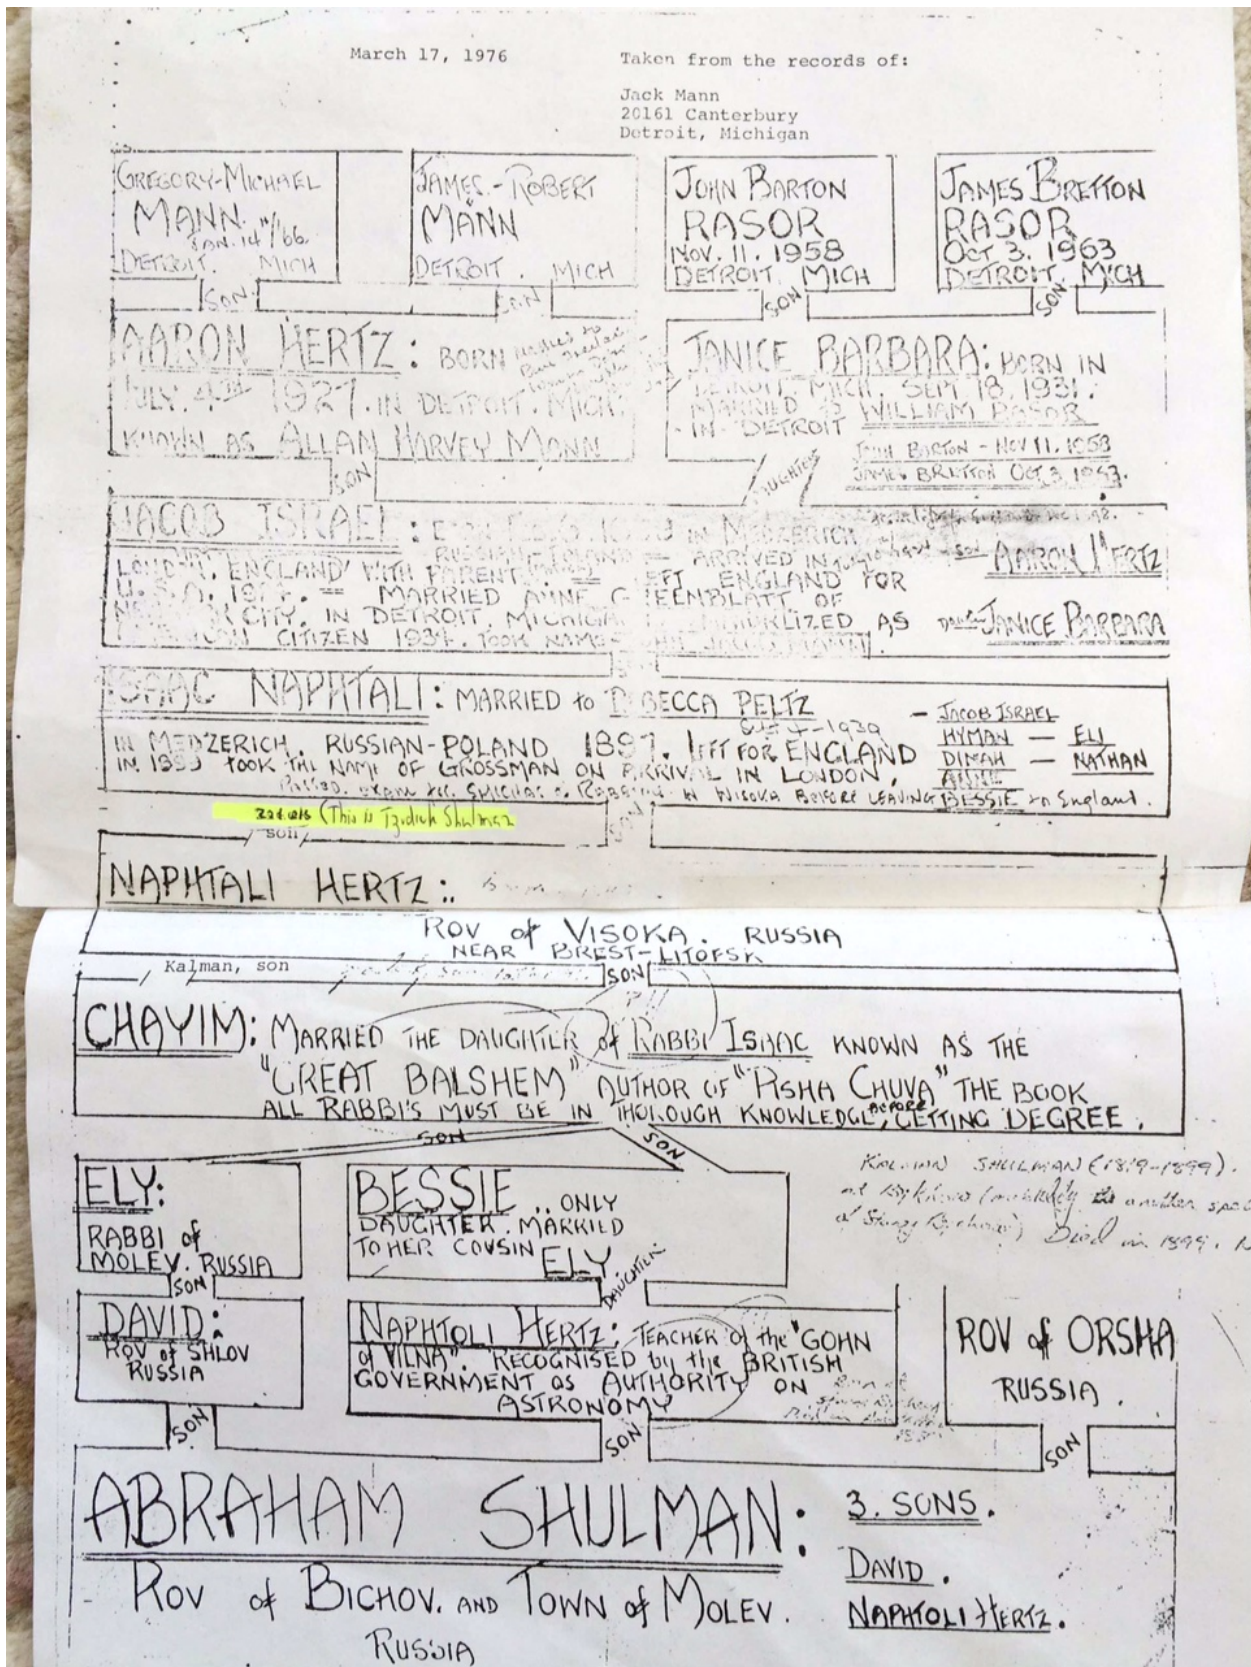 March 17, 1976
Taken from the records of:
Jack Mann
20161 Canterbury
Detroit, Michigan
GREGORY-MICHAEL
MANN.
JAN. 14th/66.
DETROIT. MICH
JAMES.-ROBERT
MANN
DETROIT. MICH
JOHN BARTON
RASOR
NOV. 11. 1958
DETROIT. MICH
JAMES BRETTON
RASOR
OCT 3. 1963
DETROIT. MICH
SON
SON
SON
SON
AARON HERTZ: BORN
JULY. 4TH 1927. IN DETROIT. MICH.
KNOWN AS ALLAN HARVEY MANN
JANICE BARBARA: BORN IN
DETROIT. MICH. SEPT. 18. 1931.
MARRIED TO WILLIAM RASOR
- IN - DETROIT
JOHN BARTON - NOV 11. 1958
JAMES BRETTON OCT. 3. 1963.
SON
DAUGHTER
JACOB ISRAEL: IN MEDZERICH
RUSSIAN-POLAND = ARRIVED IN
LONDON. ENGLAND WITH PARENT = LEFT ENGLAND FOR
U.S.A. = MARRIED ANNE GREENBLATT OF
NEW YORK CITY. IN DETROIT. MICHIGAN NATURALIZED AS
AMERICAN CITIZEN 1934. TOOK NAME
SON AARON HERTZ
JANICE BARBARA
SON
ISAAC NAPHTALI: MARRIED to REBECCA PELTZ
IN MEDZERICH. RUSSIAN-POLAND 1897. LEFT FOR ENGLAND
IN 1899 TOOK THE NAME OF GROSSMAN ON ARRIVAL IN LONDON.
IN VISOKA BEFORE LEAVING
- JACOB ISRAEL
HYMAN - ELI
DINAH - NATHAN
ANNIE
BESSIE in England.
SON
(This is Tzidich Shulman
son
NAPHTALI HERTZ:
ROV of VISOKA. RUSSIA
NEAR BREST-LITOFSK
Kalman, son
SON
CHAYIM: MARRIED THE DAUGHTER of RABBI ISAAC KNOWN AS THE
"GREAT BALSHEM" AUTHOR OF "PISHA CHUVA" THE BOOK
ALL RABBI'S MUST BE IN THOROUGH KNOWLEDGE BEFORE GETTING DEGREE.
SON
SON
ELY:
RABBI of
MOLEV. RUSSIA
BESSIE .. ONLY
DAUGHTER. MARRIED
TO HER COUSIN ELY.
KALMAN SHULMAN (1819-1899).
at Bykhovo (another
of Died in 1899.
SON
DAUGHTER
DAVID:
ROV of SHLOV
RUSSIA
NAPHTOLI HERTZ: TEACHER of the "GOHN
of VILNA". RECOGNISED by the BRITISH
GOVERNMENT as AUTHORITY ON
ASTRONOMY
ROV of ORSHA
RUSSIA.
SON
SON
SON
ABRAHAM SHULMAN:
ROV of BICHOV. AND TOWN of MOLEV.
RUSSIA
3. SONS.
DAVID.
NAPHTOLI HERTZ.